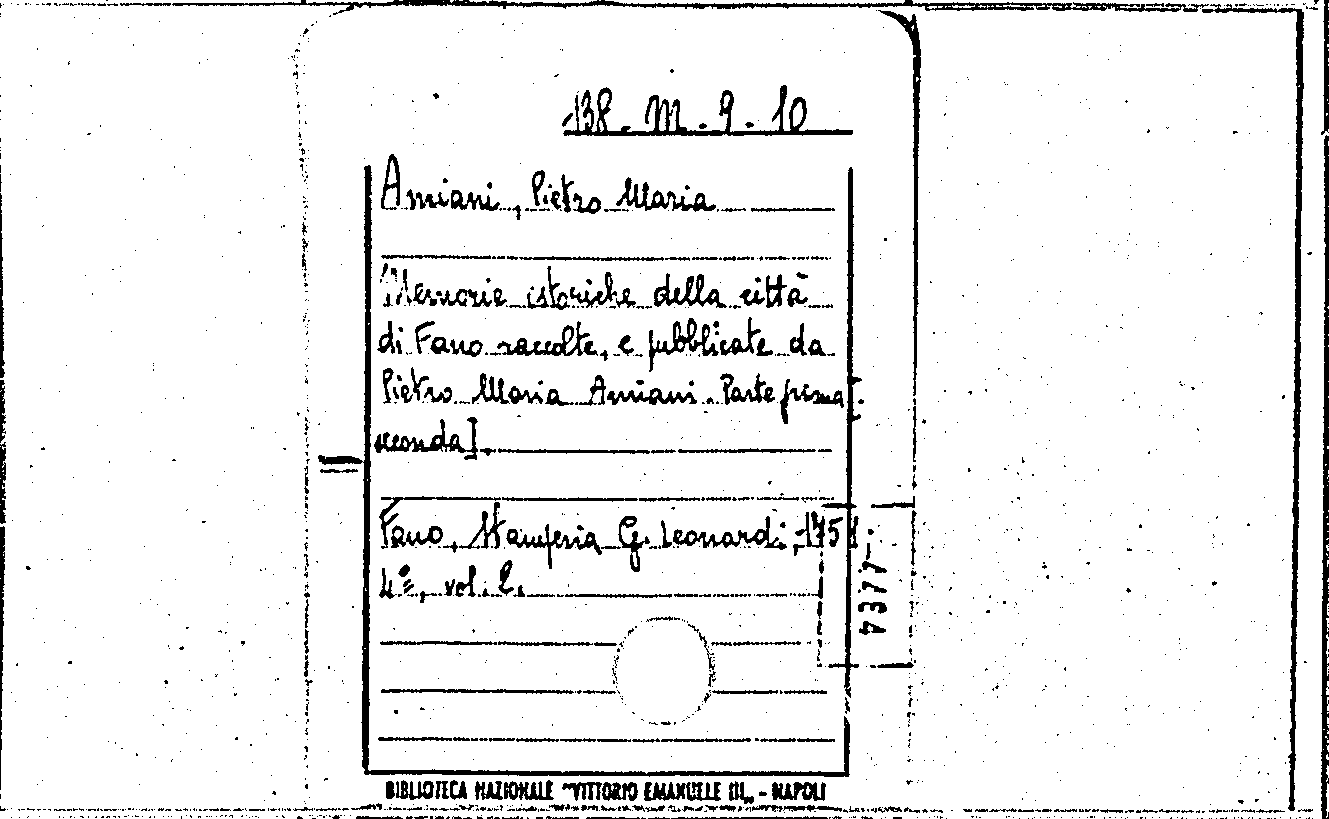 138. M. 9. 10
Amiani, Pietro Maria
Memorie istoriche della città
di Fano raccolte, e pubblicate da
Pietro Maria Amiani. Parte prima[-
seconda].
Fano, Stamperia G. Leonardi, 1751.
4º, vol. 2.
4377
BIBLIOTECA NAZIONALE "VITTORIO EMANUELE III„ - NAPOLI